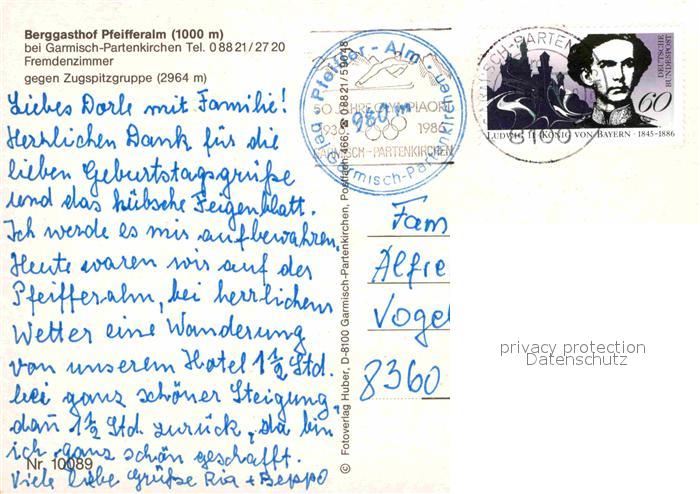 Berggasthof Pfeifferalm (1000 m)
bei Garmisch-Partenkirchen Tel. 0 88 21 / 27 20
Fremdenzimmer
gegen Zugspitzgruppe (2964 m)
Liebes Dorle mit Familie!
Herrlichen Dank für die
lieben Geburtstagsgrüße
und das hübsche Feigenblatt.
Ich werde es mir aufbewahren.
Heute waren wir auf der
Pfeifferalm, bei herrlichem
Wetter eine Wanderung
von unserem Hotel 1 1/2 Std.
bei ganz schöner Steigung,
dan̄ 1 1/2 Std. zurück, da bin
ich ganz schön geschafft.
Nr. 10089
Viele liebe Grüße Ria + Beppo
© Fotoverlag Huber, D-8100 Garmisch-Partenkirchen, Postfach 466 ☎ 0 88 21 / 5 90 48
Pfeiffer-Alm
980 m
Garmisch-Partenkirchen
50 JAHRE OLYMPIAORT
1936 1986
GARMISCH-PARTENKIRCHEN
DEUTSCHE
BUNDESPOST
60
LUDWIG II. KÖNIG VON BAYERN · 1845-1886
8100
Fam
Alfre
Vogel
8360
privacy protection
Datenschutz